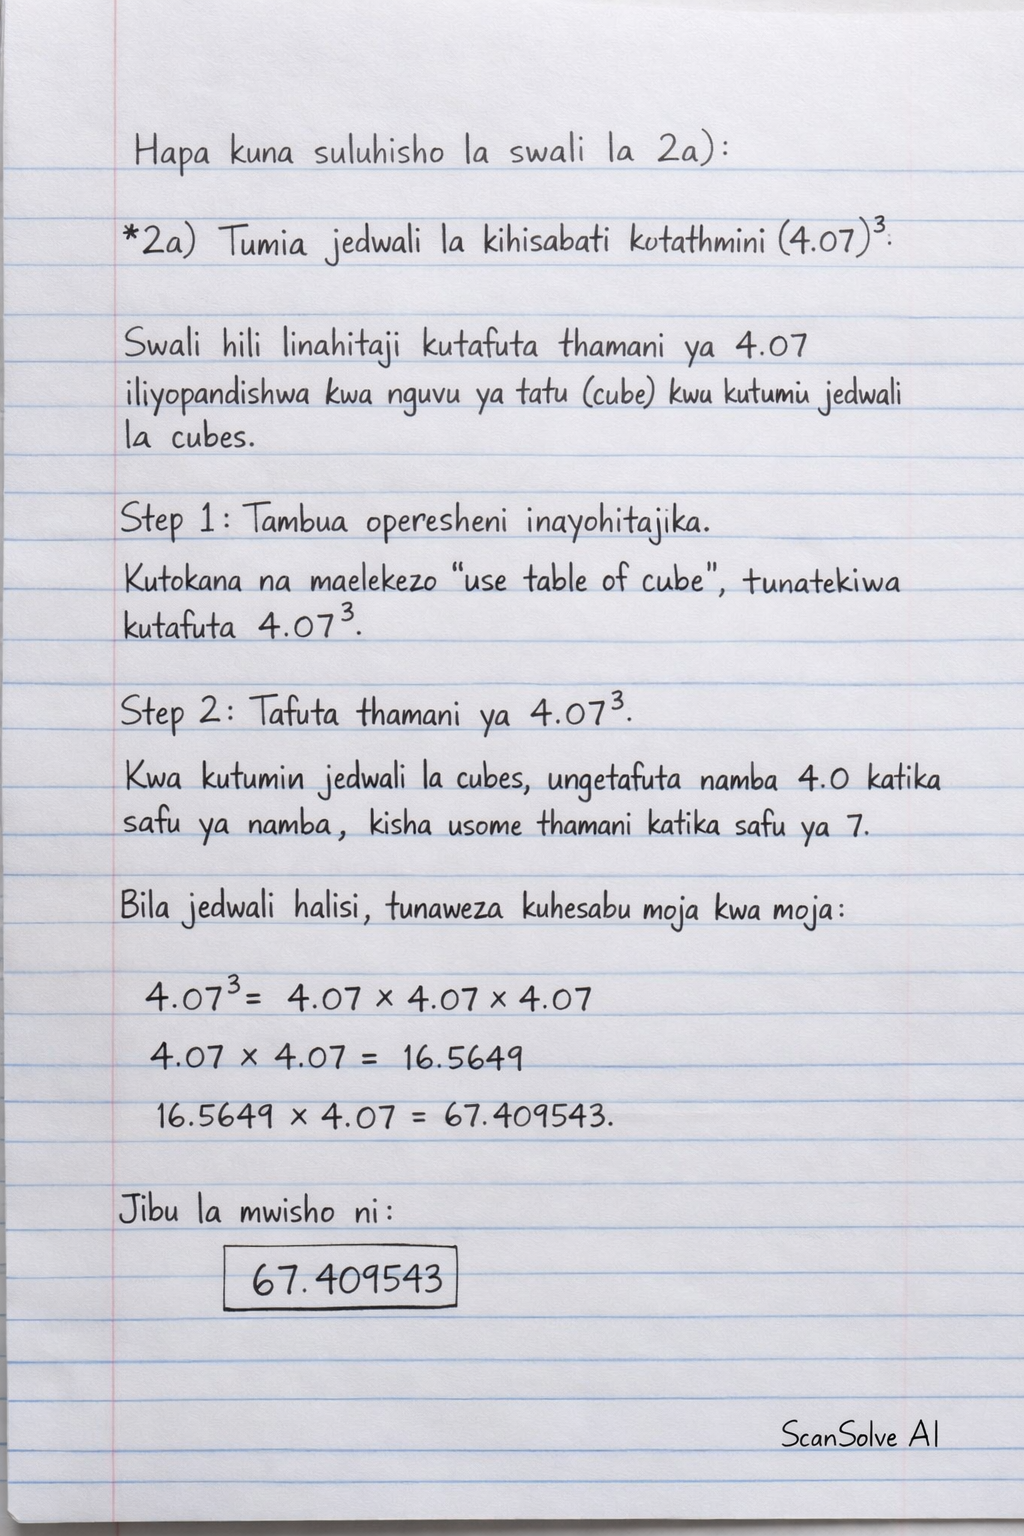 Hapa kuna suluhisho la swali la 2a):
*2a) Tumia jedwali la kihisabati kutathmini (4.07)³:
Swali hili linahitaji kutafuta thamani ya 4.07
iliyopandishwa kwa nguvu ya tatu (cube) kwu kutumiu jedwali
la cubes.
Step 1: Tambua operesheni inayohitajika.
Kutokana na maelekezo "use table of cube", tunatekiwa
kutafuta 4.07³.
Step 2: Tafuta thamani ya 4.07³.
Kwa kutumin jedwali la cubes, ungetafuta namba 4.0 katika
safu ya namba, kisha usome thamani katika safu ya 7.
Bila jedwali halisi, tunaweza kuhesabu moja kwa moja:
4.07³ = 4.07 × 4.07 × 4.07
4.07 × 4.07 = 16.5649
16.5649 × 4.07 = 67.409543.
Jibu la mwisho ni:
67.409543
ScanSolve AI